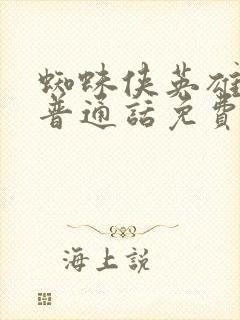 蜘蛛侠英雄
普通話免費
海上説